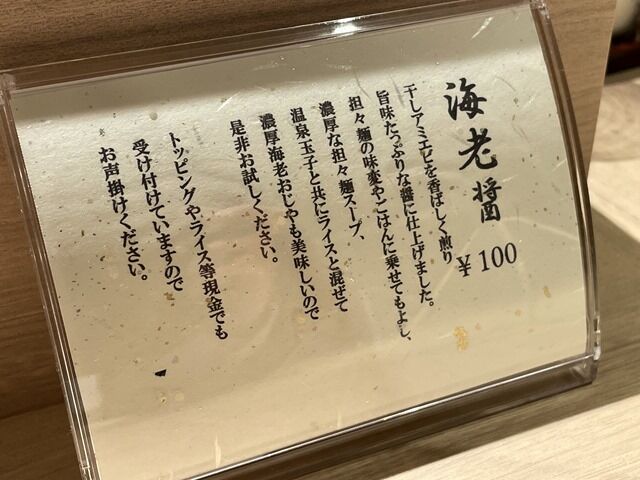 海老醤
¥100
干しアミエビを香ばしく煎り
旨味たっぷりな醤に仕上げました。
担々麺の味変やごはんに乗せてもよし、
濃厚な担々麺スープ、
温泉玉子と共にライスと混ぜて
濃厚海老おじやも美味しいので
是非お試しください。
トッピングやライス等現金でも
受け付けていますので
お声掛けください。